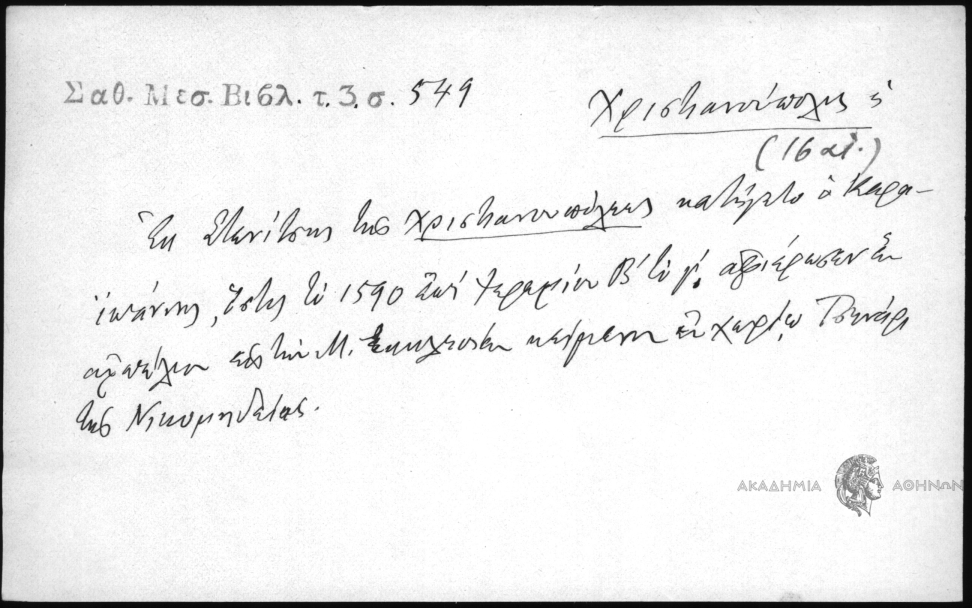 Σαθ. Μεσ. Βιβλ. τ. 3. σ. 549
Χριστιανούπολις ἡ
(16 αἰ.)
Ἐκ Στενίτσης τῆς Χριστιανουπόλεως κατήγετο ὁ Καρα-
ϊωάννης, ὅστις τῷ 1590 ἐπὶ Ἱερεμίου Β' τὸ γ'. ἀφιέρωσεν ἓν
ἀμπέλιον εἰς τὴν Μ. Ἐκκλησίαν κείμενον ἐν χωρίῳ
τῆς Νικομηδείας.
ΑΚΑΔΗΜΙΑ ΑΘΗΝΩΝ